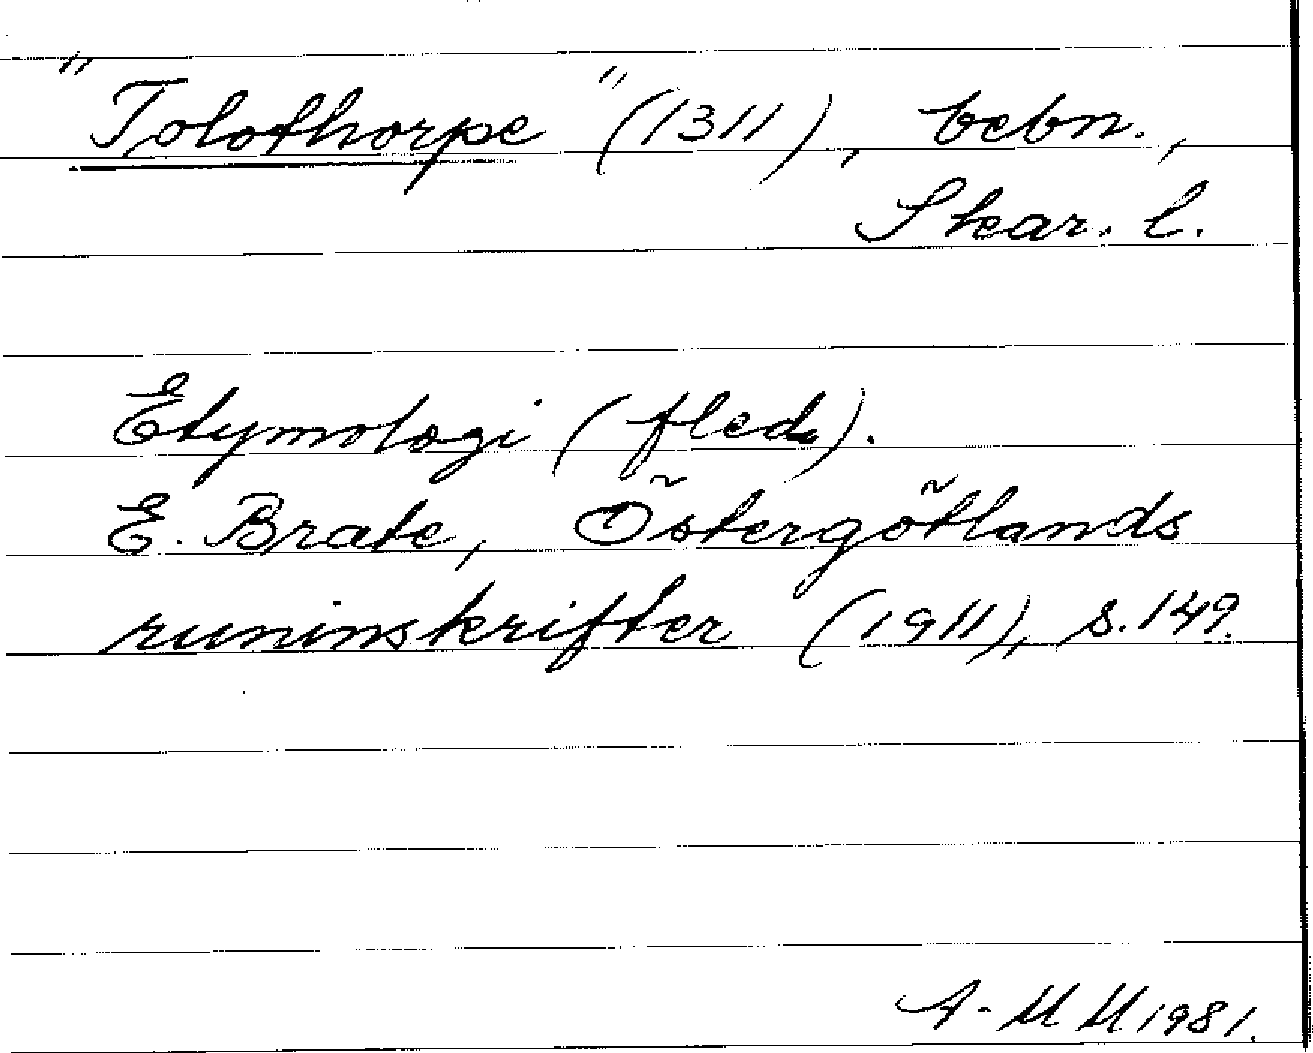 "Tolofthorpe" (1311), bebn.,
Skar. l.
Etymologi (fled.).
E. Brate, Östergötlands
runinskrifter (1911), s. 149.
A-MM 1981.